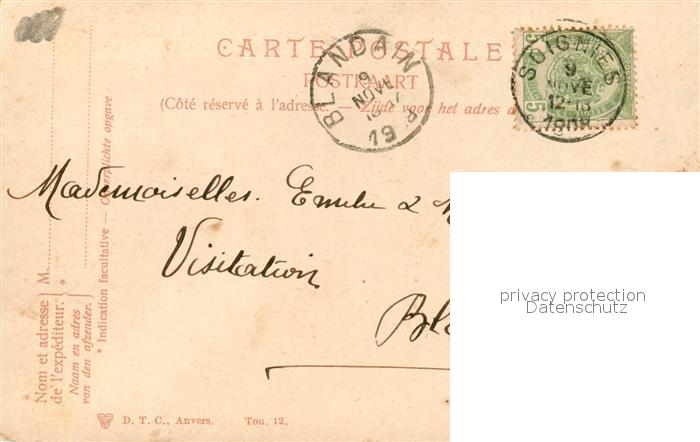 CARTE POSTALE
POSTKAART
(Côté réservé à l'adresse. — Zijde voor het adres
BLANDAIN
9
NOV
19
SOIGNIES
9
NOVE
12-13
1908
5
5
Mademoiselles. Emilie &
Visitation
Bla
privacy protection
Datenschutz
M.
Nom et adresse
de l'expéditeur.
Naam en adres
van den afzender.
* Indication facultative — Onverplichte opgave
D. T. C., Anvers. Tou. 12.